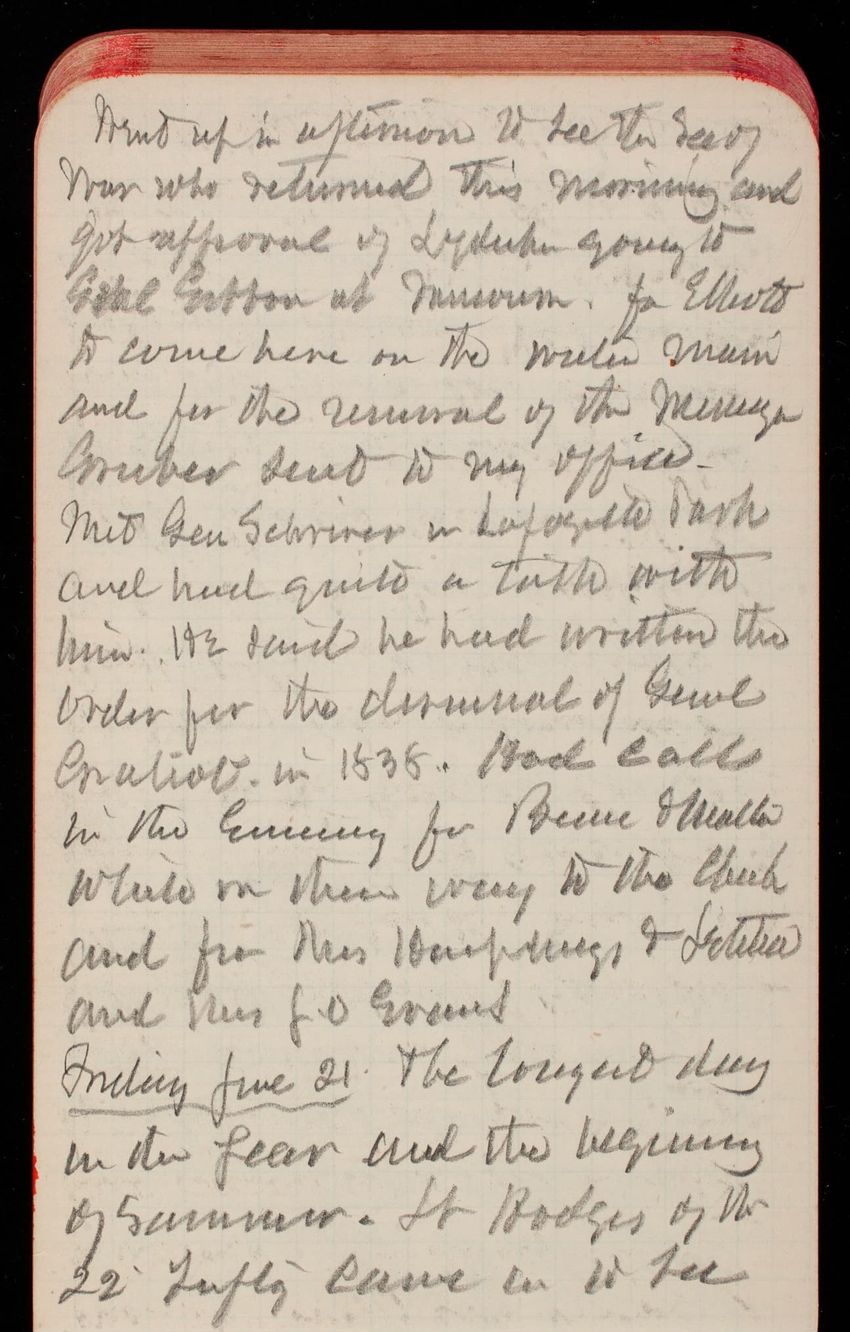 Went up in afternoon to see the Secy
War who returned this morning and
got approval of Lydecker going to
Genl Gibbon at Vancouver. for Elliott
to come here on the water main
and for the removal of the
Gruber sent to my office -
Met Gen Schriver in Lafayette Park
and had quite a talk with
him. He said he had written the
order for the dismissal of Genl
Gratiot. in 1838. Had calls
in the Evening for &
White on their way to the Club
and from Mrs Humphreys & Letitia
and Mrs J. D Evans
Friday June 21. The longest day
in the year and the beginning
of Summer. Lt Hodges of the
22 Infty came in to see